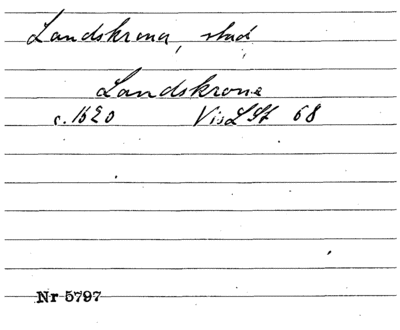 Landskrona, stad
Landskrone
c. 1620 VisLSt 68
Nr 5797